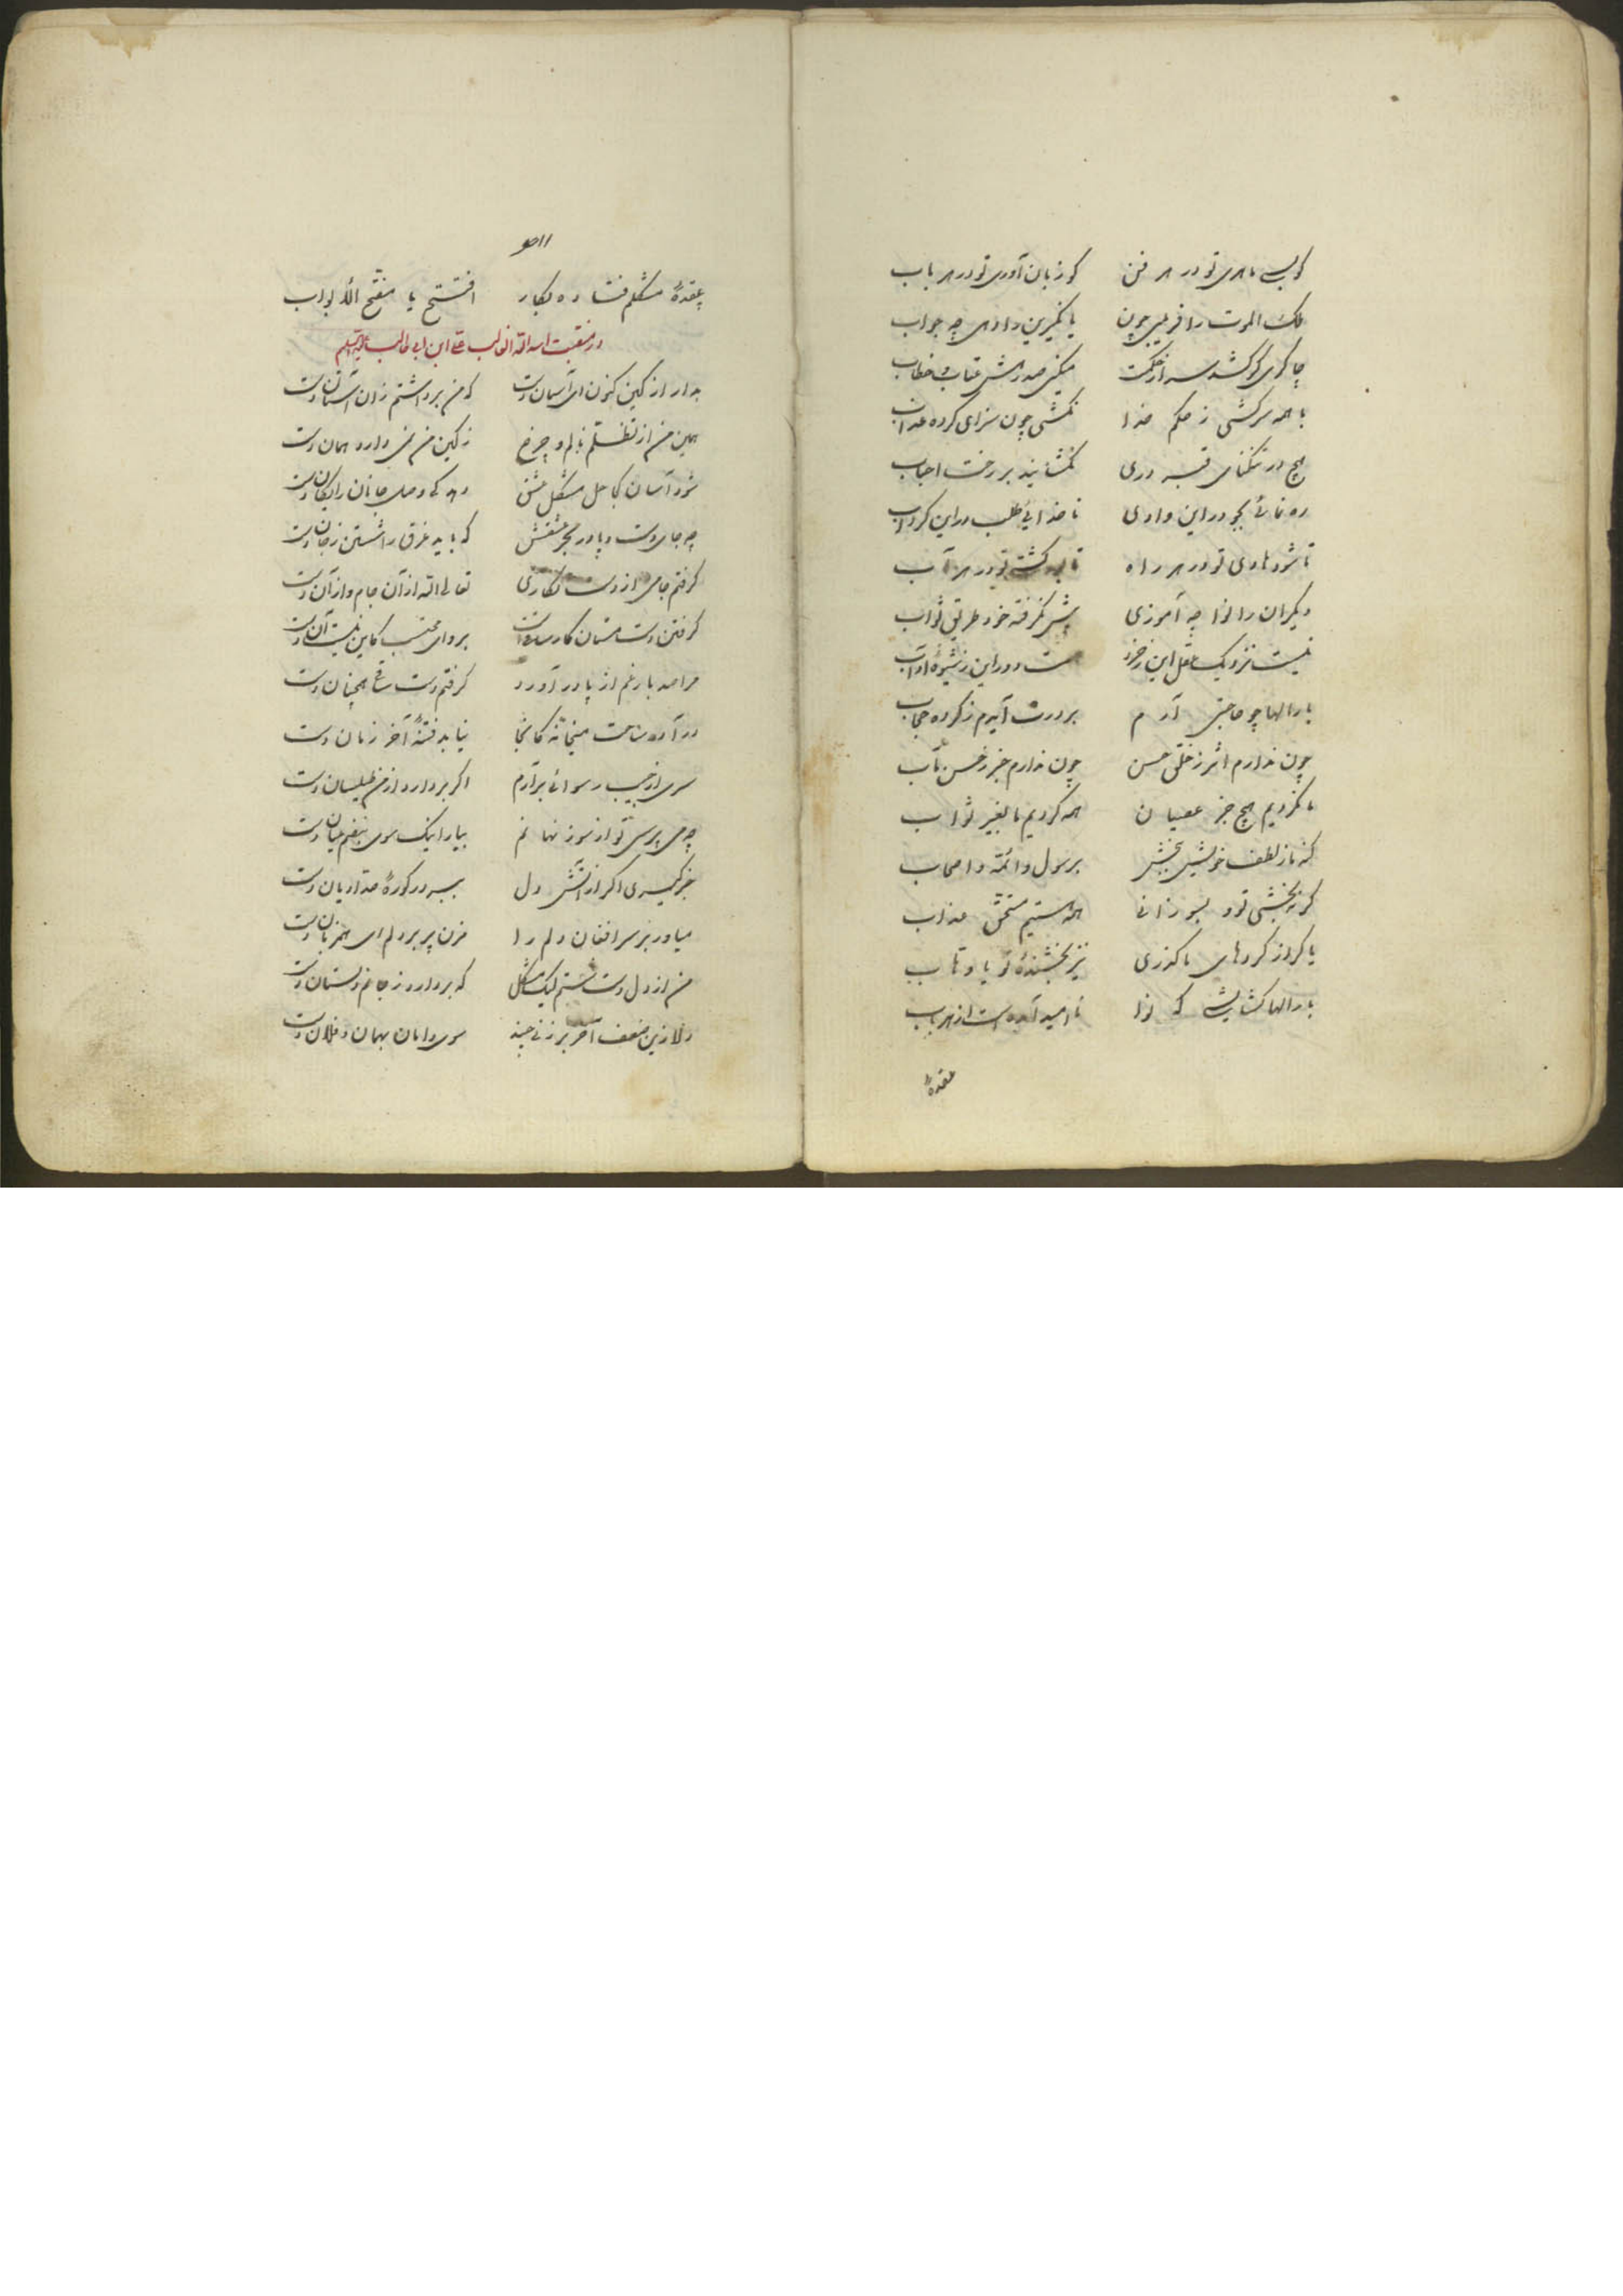 کو بسی ماهری تو در هر فن کو زبان آوری تو در هر باب
ملک الموت را فریبی چون با نکیرین را دهی چه جواب
چاکری گر کشد سر از حکمت میکنی صد رهش عتاب و خطاب
با همه سرکشی ز حکم خدا نکشی چون سزای کرده عذاب
هیچ در تنکنای قبر دری نکشایند بر رخت احباب
ره نمائی بجو در این وادی ناخدائی طلب در این کرداب
تا شود هادی تو در هر راه تا برد کشتی تو در هر آب
دیکران را نوا چه آموزی پیش نکرفته خود طریق ثواب
نیست نزدیک عقل این ز خرد هست دور این ز شیوهٔ آداب
بارالها چو حاجتی آرم بر درت آیدم ز کرده حجاب
چون ندارم اثر ز خلق حسن چون ندارم خبر ز حسن مآب
ما نکردیم هیچ جز عصیان همه کردیم ما بغیر ثواب
کنه ما ز لطف خویش ببخش برسول و ائمه و اصحاب
کر نبخشی تو و بسوزانی همه هستیم مستحق عذاب
یا کر از کردهای ما کذری نیز بخشندهٔ تو یا وهاب
بارالها کشایشی که نوا ناامید آمده است از هر باب
عقدهٔ
عقدهٔ مشکلم فتاده بکار افتتح یا مفتح الأبواب
در منقبت اسد الله الغالب علی ابن ابی طالب علیه السلم
بدار از کین کنون ای آسمان دست که من برداشتم زان آستان دست
همین من از تظلم نالم و چرخ ز کین من نمی دارد همان دست
شود آسان کجا حل مشکل عشق دهد کی وصل جانان رایکان دست
چه جای دست و پا در بحر عشقش که باید غرق را شستن ز جان دست
کرفتم جامی از دست نکاری تعالی الله از آن جام و از آن دست
کرفتن دست مستان کار ساده است برو ای محتسب کاین نیست آن دست
مرا صد بار غم از پا در آورد کرفتم دست ساقی همچنان دست
در آ در ساحت میخانه کانجا نیابد فتنهٔ آخر زمان دست
سری از جیب رسوائی برآرم اکر بردارد از من طیلسان دست
چه می پرسی تو از سوز نهانم بیار اینک سوی نبضم عیان دست
خبر کیری اکر از آتش دل ببر در کورهٔ حدادیان دست
میاور بر سر افغان دلم را مزن پر بر دلم ای همزبان دست
من از دل دست شستم لیک مشکل که بردارد ز جانم دلستان دست
دلا زین ضعف آخر بر زنی چند سوی دامان بهمان و فلان دست